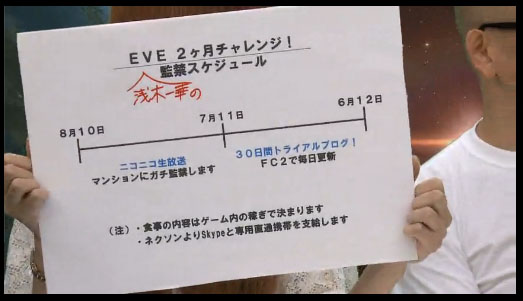 EVE 2ヶ月チャレンジ！
監禁スケジュール
浅木一華の
8月10日
7月11日
6月12日
ニコニコ生放送
マンションにガチ監禁します
30日間トライアルブログ！
FC2で毎日更新
（注）・食事の内容はゲーム内の稼ぎで決まります
・ネクソンよりSkypeと専用直通携帯を支給します